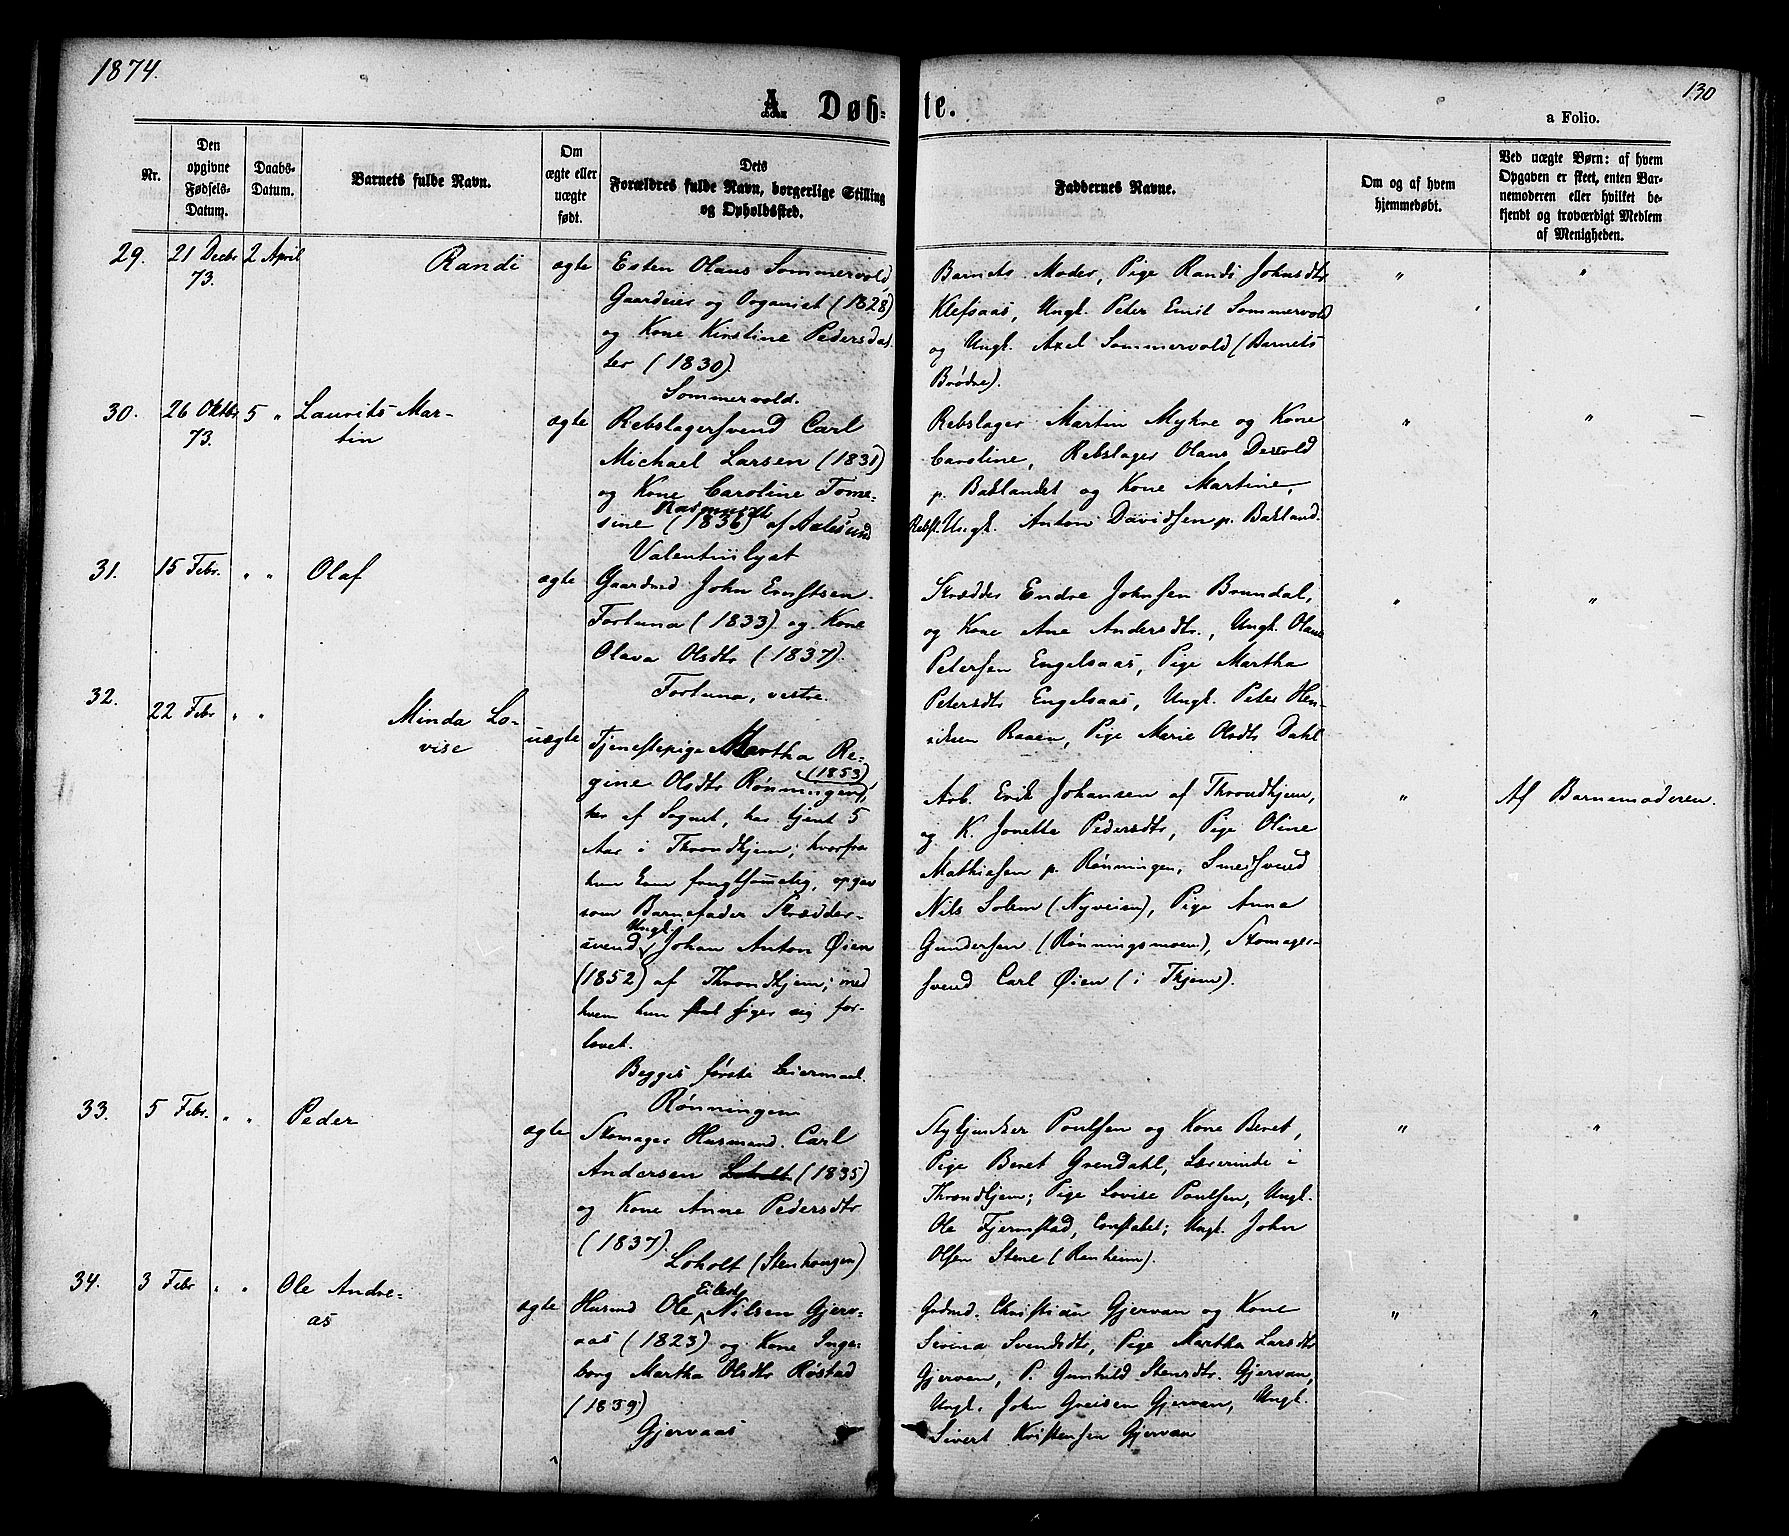 1874.
130
A. Døb-
te.
a Folio.
Nr.
Den
opgivne
Fødsels-
Datum.
Daabs-
Datum.
Barnets fulde Navn.
Om
ægte eller
uægte
født.
Dets
Forældres fulde Navn, borgerlige Stilling
og Opholdssted.
Faddernes Navne.
Om og af hvem
hjemmedøbt.
Ved uægte Børn: af hvem
Opgaven er skeet, enten Bar-
nemoderen eller hvilket be-
kjendt og troværdigt Medlem
af Menigheden.
29. 21 Decbr 73. 2 April Randi ægte
Esten Olaus Sommervold,
Gaardeier og Organist (1828)
og Kone Kirstine Pedersdat-
ter (1830).
Sommervold.
Barnets Moder, Pige Randi Johnsdtr
Klefsaas, Ungk. Peter Emil Sommervold
og Ungk. Axel Sommervold (Barnets
Brødre).
" "
30. 26 Oktbr 73. 5 " Laurits Mar-
tin
ægte
Rebslagersvend Carl
Michael Larsen (1831)
og Kone Caroline Tome-
Rasmusdtr
sine (1836) af Aalesund
Valentinlyst
Rebslager Martin Myhre og Kone
Caroline, Rebslager Olaus Devold
p. Baklandet og Kone Martine,
Rebsl. Ungk. Anton Davidsen p. Bakland.
" "
31. 15 Febr. " " Olaf ægte
Gaardmd John Ernstsen
Fortuna (1833) og Kone
Olava Olsdtr (1837).
Fortuna, vestre.
Skrædder Endre Johnsen Brundal,
og Kone Ane Andersdtr., Ungk. Olaus
Petersen Engelsaas, Pige Martha
Petersdtr Engelsaas, Ungk. Peter Hen-
riksen Raaen, Pige Marie Olsdtr Dahl
" "
32. 22 Febr " " Minda Lo-
vise
uægte
Tjenestepige Martha Re-
(1853)
gine Olsdtr Rønningen,
her af Sognet, har tjent 5
Aar i Throndhjem, hvorfra
hun kom frugtsommelig, opgav
som Barnefader Skrædder-
Ungk.
svend Johan Anton Øien
(1852) af Throndhjem; med
hvem hun skal siges sig for-
lovet.
Begges første Leiermaal.
Rønningen
Arb. Erik Johansen af Throndhjem,
og K. Jonetta Pedersdtr, Pige Oline
Mathiesen p. Rønningen, Smedsvend
Nils Solem (Nyveien), Pige Anna
Gundersen (Rønningsmoen), Skomager-
svend Carl Øien (i Thjem).
"
Af Barnemoderen.
33. 5 Febr. " " Peder ægte
Skomager Husmand. Carl
Andersen Loholt (1835)
og Kone Anne Pedersdtr
(1837).
Loholt (Stenhaugen)
Stykjunker Poulsen og Kone Beret,
Pige Beret Grendahl, Lærerinde i
Throndhjem; Pige Lovise Poulsen, Ungk.
Ole Fjermstad, Constabel; Ungk. John
Olsen Stene (Renheim).
" "
34. 3 Febr " " Ole Andre-
as
ægte
Eilert
Husmd Ole Nilsen Gjerv-
aas (1823) og Kone Inge-
borg Martha Olsdtr Røstad
(1839)
Gjervaas
Grdmd. Christian Gjervan og Kone
Sivina Svendsdtr, Pige Martha Larsdtr
Gjervan, P. Gunhild Stensdtr. Gjervan,
Ungk. John Greisen Gjervan, Ungk.
Sivert Kristensen Gjervan
" "